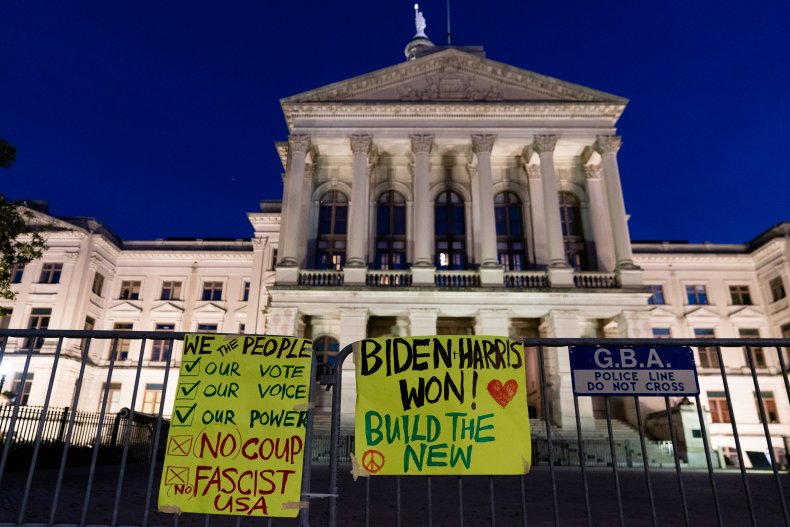 WE THE PEOPLE
OUR VOTE
OUR VOICE
OUR POWER
(NO) COUP
(NO) FASCIST
USA
BIDEN + HARRIS
WON!
BUILD THE
NEW
G.B.A.
POLICE LINE
DO NOT CROSS